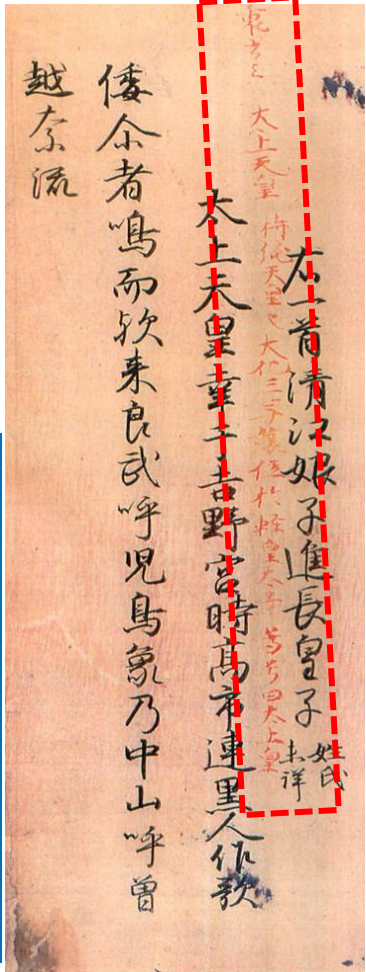 右一首清江娘子進長皇子 姓氏未詳
太上天皇 持統天皇也 大化三年譲位於軽皇太子 尊号曰太上皇
太上天皇幸于吉野宮時高市連黒人作歌
倭尓者鳴而欤来良武呼児鳥象乃中山呼曽
越奈流